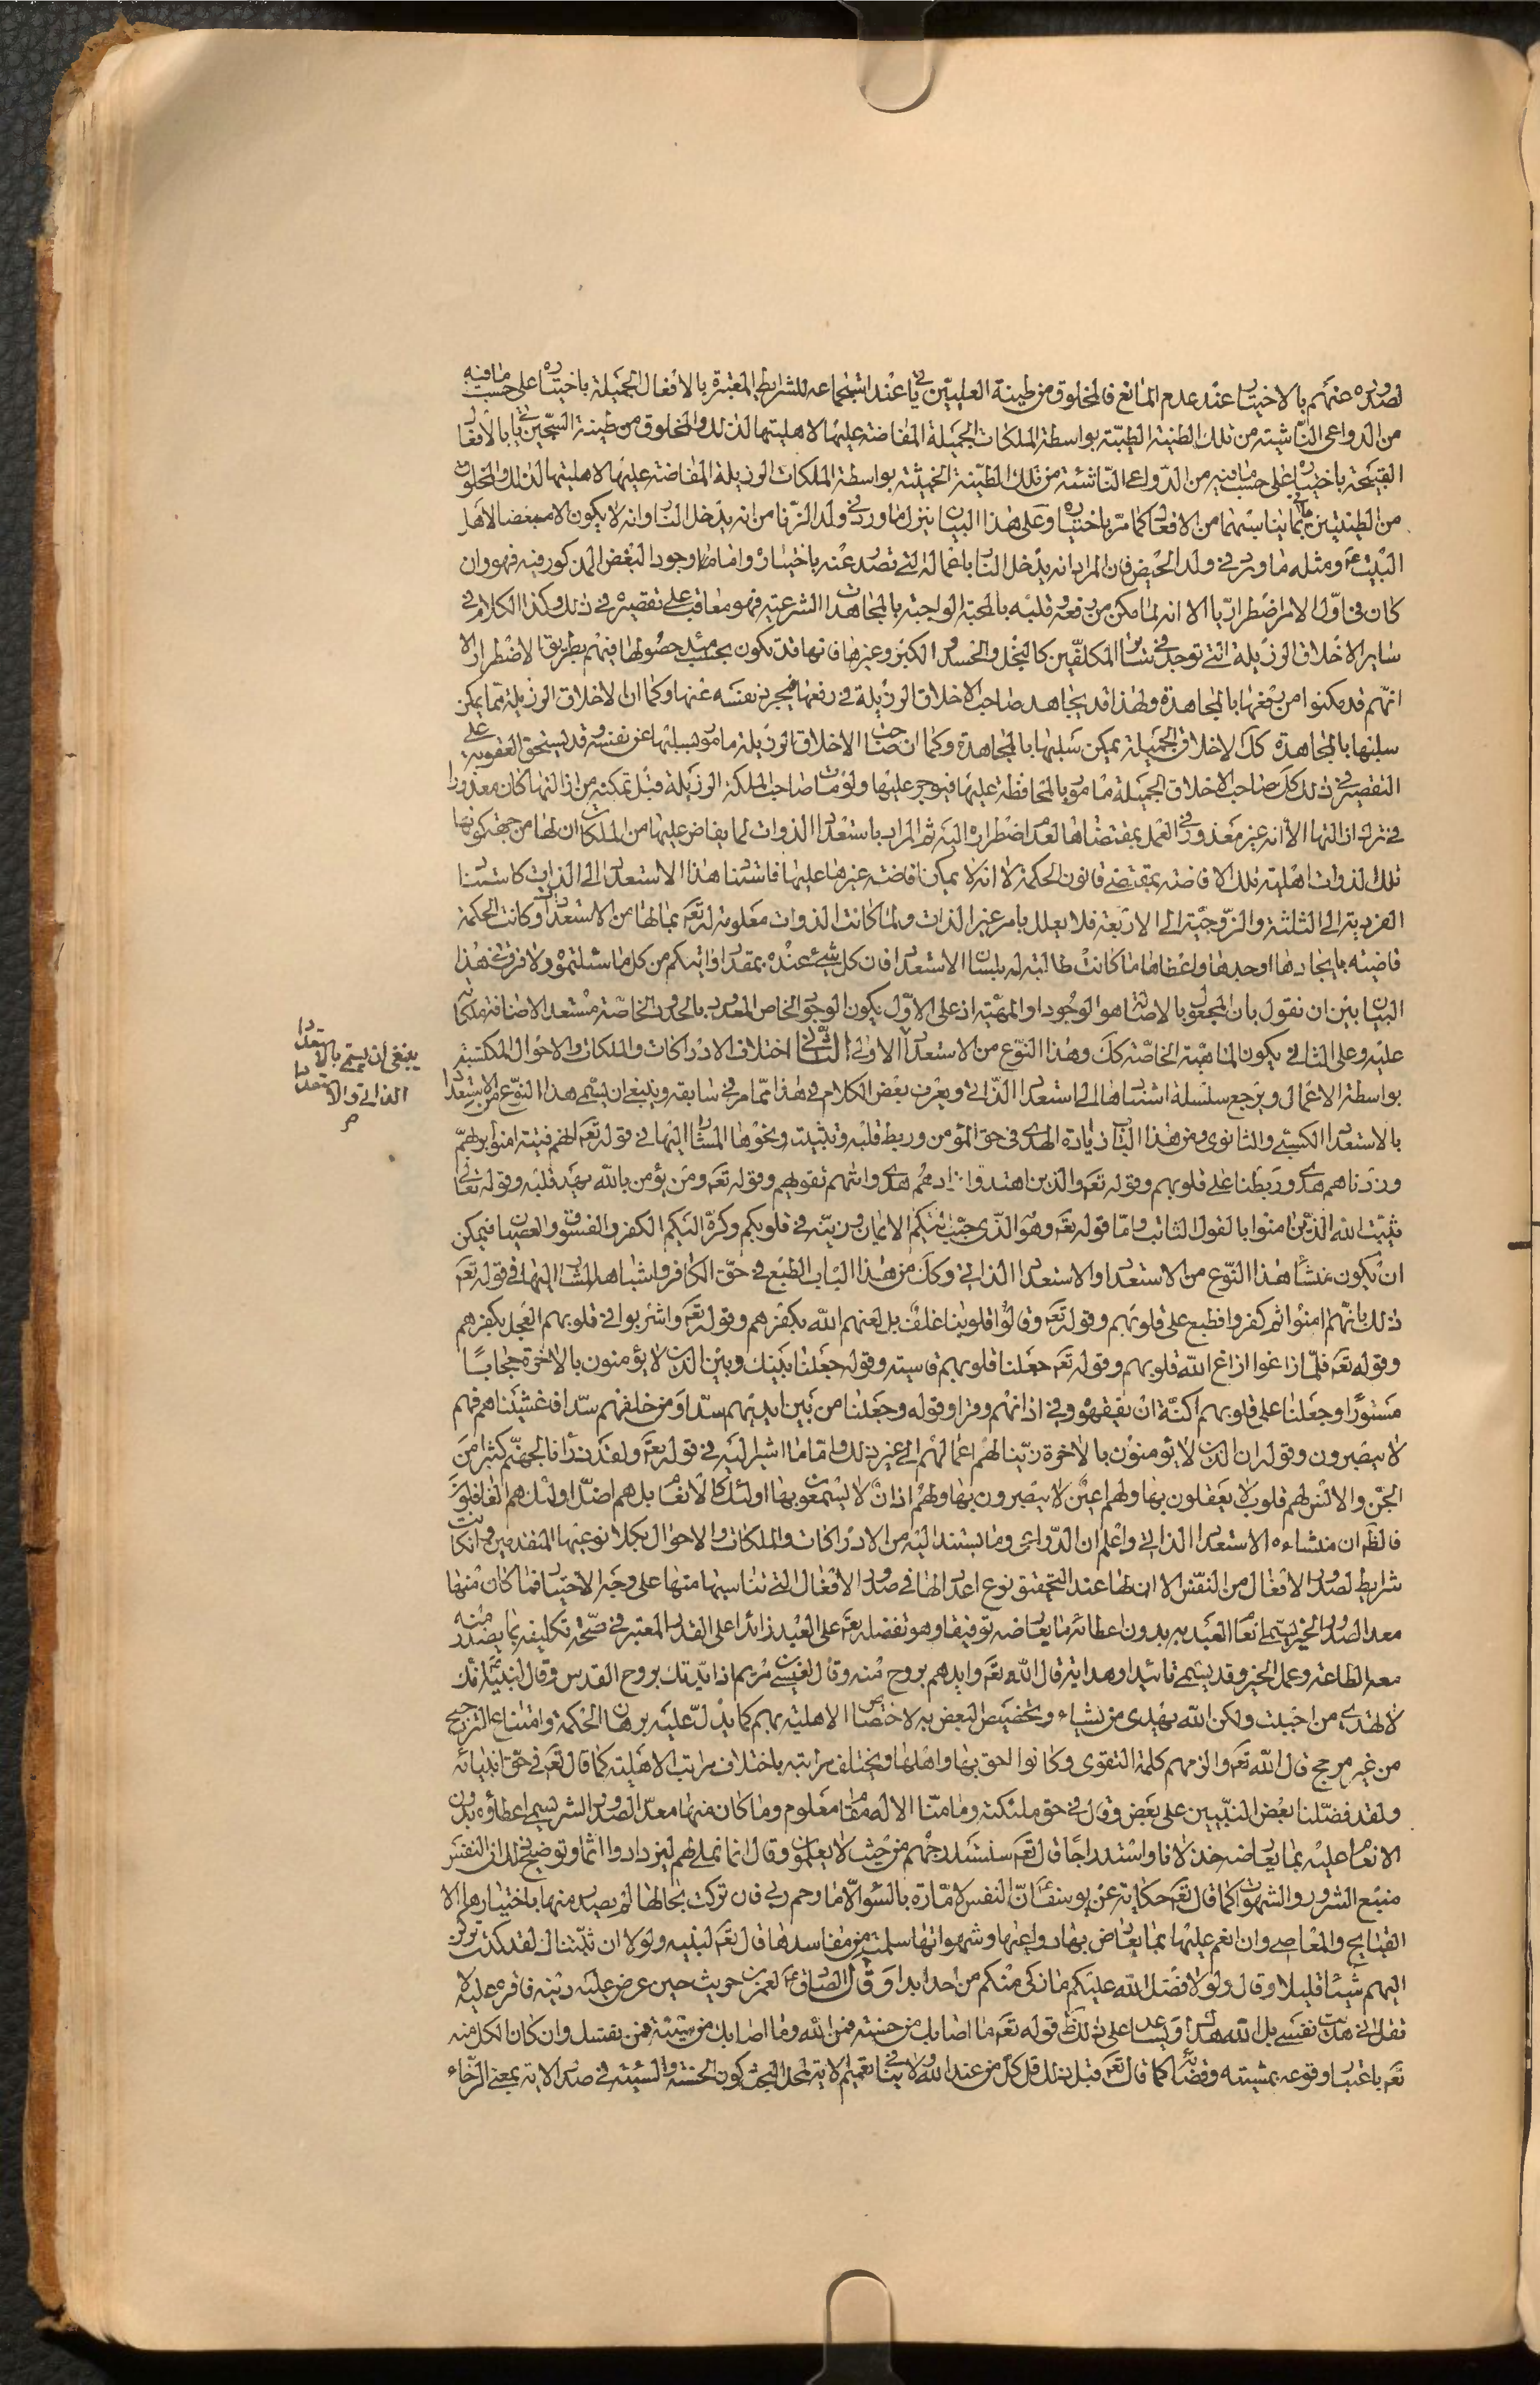 لصدوره عنهم بالاختيار عند عدم المانع فالمخلوق من طينة العليين يأتي عند استجماعه للشرايط المعتبرة بالافعال الجميلة باختياره على حسب ما فيه
من الدواعى الناشئة من تلك الطينة الطيبة بواسطة الملكات الجميلة المفاضة عليها لاهليتها لذلك والمخلوق من طينة السجين يأتي بالافعال
القبيحة باختياره على حسب ما فيه من الدواعى الناشئة من تلك الطينة الخبيثة بواسطة الملكات الرذيلة المفاضة عليها لاهليتها لذلك والمخلوق
من الطينتين يأتي بما يناسبهما من الافعال كما مر باختياره وعلى هذا البيان ينزل ما ورد في ولد الزنا من انه يدخل النار وانه لا يكون الا مبغضا لاهل
البيت ع ومثله ما ورد في ولد الحيض فان المراد انه يدخل النار باعماله التي تصدر عنه باختياره واما وجود البغض المذكور فيه فهو وان
كان في اول الامر اضطراريا الا انه لما مكن من رفعه وقلبه بالمحبة الواجبة بالمجاهدات الشرعية فهو معاقب على تقصيره في ذلك وكذا الكلام في
ساير الاخلاق الرذيلة التي توجد في ساير المكلفين كالبخل والحسد والكبر وغيرها فانها قد تكون بحسب مبدء حصولها فيهم بطريق الاضطرار الا
انهم قد مكنوا من رفعها بالمجاهدة ولهذا قد يجاهد صاحب الاخلاق الرذيلة في رفعها فيجرد نفسه عنها وكما ان الاخلاق الرذيلة مما يمكن
سلبها بالمجاهدة كك الاخلاق الجميلة يمكن سلبها بالمجاهدة وكما ان صاحب الاخلاق الرذيلة مامور بسلبها عن نفسه وقد يستحق العقوبة على
التقصير في ذلك كك صاحب الاخلاق الجميلة مامور بالمحافظة عليها فيوجر عليها ولو مات صاحب الملكة الرذيلة قبل تمكنه من ازالتها كان معذورا
في ترك ازالتها الا انه غير معذور في العمل بمقتضاها لعدم اضطراره اليه ثم المراد باستعداد الذوات لما يفاض عليها من الملكات ان لها من جهة كونها
تلك الذوات اهلية تلك الافاضة بمقتضى قانون الحكمة لا انه لا يمكن افاضة غيرها عليها فاستناد هذا الاستعداد الى الذوات كاستناد
الفردية الى الثلثة والزوجية الى الاربعة فلا يعلل بامر غير الذات ولما كانت الذوات معلومة له تعم بما لها من الاستعدادات وكانت الحكمة
قاضية بايجادها اوجدها واعطاها ما كانت طالبة له بلسان الاستعداد فان كل شيء عنده بمقدار واتيكم من كل ما سئلتموه ولا فرق في هذا
البيان بين ان نقول بان المجعول بالاصالة هو الوجود او المهية اذ على الاول يكون الوجود الخاص المحدود بالحدود الخاصة مستعد الاضافة ملكاته
عليه وعلى الثاني يكون الماهية الخاصة كك وهذا النوع من الاستعداد الاولى الثاني اختلاف الادراكات والملكات والاحوال المكتسبة
بواسطة الاعمال ويرجع سلسلة استنادها الى استعداد الذاتي ويعرف بعض الكلام في هذا مما مر في سابقه وينبغي ان يسمى هذا النوع من الاستعداد
بالاستعداد الكسبي والثانوى ومن هذا الباب زيادة الهدى في حق المؤمن وربط قلبه وتثبيت ونحوها المشار اليها في قوله تعم انهم فتية امنوا بربهم
وزدناهم هدى وربطنا على قلوبهم وقوله تعم والذين اهتدوا زادهم هدى واتيهم تقويهم وقوله تعم ومن يؤمن بالله يهد قلبه وقوله تعالى
يثبت الله الذين امنوا بالقول الثابت واما قوله تعم وهو الذي حبب اليكم الايمان وزينه في قلوبكم وكره اليكم الكفر والفسوق والعصيان فيمكن
ان يكون منشأ هذا النوع من الاستعداد او الاستعداد الذاتي وكك من هذا الباب الطبع في حق الكافر واشباهه المشار اليها في قوله تعم
ذلك بانهم امنوا ثم كفروا فطبع على قلوبهم وقوله تعم وقالوا قلوبنا غلف بل لعنهم الله بكفرهم وقوله تعم واشربوا في قلوبهم العجل بكفرهم
وقوله تعم فلما زاغوا ازاغ الله قلوبهم وقوله تعم جعلنا قلوبهم قاسية وقوله جعلنا بينك وبين الذين لا يؤمنون بالاخرة حجابا
مستورا وجعلنا على قلوبهم اكنة ان يفقهوه وفي اذانهم وقرا وقوله وجعلنا من بين ايديهم سدا ومن خلفهم سدا فاغشيناهم فهم
لا يبصرون وقوله ان الذين لا يؤمنون بالاخرة زينا لهم اعمالهم الى غير ذلك واما ما اشير اليه في قوله تعم ولقد ذرأنا لجهنم كثيرا من
الجن والانس لهم قلوب لا يعقلون بها ولهم اعين لا يبصرون بها ولهم اذان لا يسمعون بها اولئك كالانعام بل هم اضل اولئك هم الغافلون
فالظ ان منشاءه الاستعداد الذاتي واعلم ان الدواعى وما يستند اليه من الادراكات والملكات والاحوال بكلا نوعيها المتقدمين وان كانت
شرايط لصدور الافعال من النفس الا ان لها عند التحقيق نوع اعداد لها في صدور الافعال التي تناسبها منها على وجه الاختيار فما كان منها
معد الصدور الخير يسمى انعام العبد به بدون اعطائه ما يعارضه توفيقا وهو تفضله تعم على العبد زائدا على القدر المعتبر في صحة تكليفه بما يصدر منه
معه الطاعة وعمل الخير وقد يسمى تائيدا وهداية قال الله تعم وايدهم بروح منه وقال لعيسى بن مريم اذ ايدتك بروح القدس وقال لنبيه انك
لا تهدى من احببت ولكن الله يهدى من يشاء وتخصيص البعض به لاختصاص الاهلية بهم كما يدل عليه برهان الحكمة وامتناع الترجيح
من غير مرجح قال الله تعم والزمهم كلمة التقوى وكانوا احق بها واهلها ويختلف مراتبه باختلاف مراتب الاهلية كما قال تعم في حق انبيائه
ولقد فضلنا بعض النبيين على بعض وقال في حق ملئكته وما منا الا له مقام معلوم وما كان منها معد الصدور الشر يسمى اعطاؤه بدون
الانعام عليه بما يعارضه خذلانا واستدراجا قال تعم سنستدرجهم من حيث لا يعلمون وقال انما نملي لهم ليزدادوا اثما وتوضيح ذلك ان النفس
منبع الشرور والشهوات كما قال تعم حكاية عن يوسف ان النفس لامارة بالسوء الا ما رحم ربي فان تركت بحالها لم يصدر منها باختيارها الا
القبايح والمعاصي وان انعم عليها بما يعارض بها دواعيها وشهواتها سلمت من مفاسدها قال تعم لنبيه ولولا ان ثبتناك لقد كدت تركن
اليهم شيئا قليلا وقال ولولا فضل الله عليكم ما زكى منكم من احد ابدا وقال الصادق ع لعمر بن حريث حين عرض عليه دينه فاقره عليه لا
تقل اني هديت نفسي بل الله هداك ويساعد على ذلك ظ قوله تعم ما اصابك من حسنة فمن الله وما اصابك من سيئة فمن نفسك وان كان الكل منه
تعم باعتبار وقوعه بمشيته وقضائه كما قال تعم قبل ذلك قل كل من عند الله ولا ينافي تعميم الاية لمحل البحث كون الحسنة والسيئة في صدر الاية بمعنى الرخاء
ينبغي ان يسمى بالاستعداد
الذاتي والاستعداد